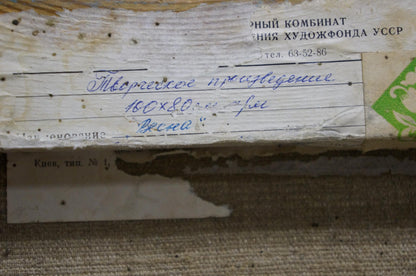 РНЫЙ КОМБИНАТ
ЕНИЯ ХУДОЖФОНДА УССР
тел. 63-52-86
Творческое произведение
160х80
"Весна"
менование
Киев, тип. № 1,